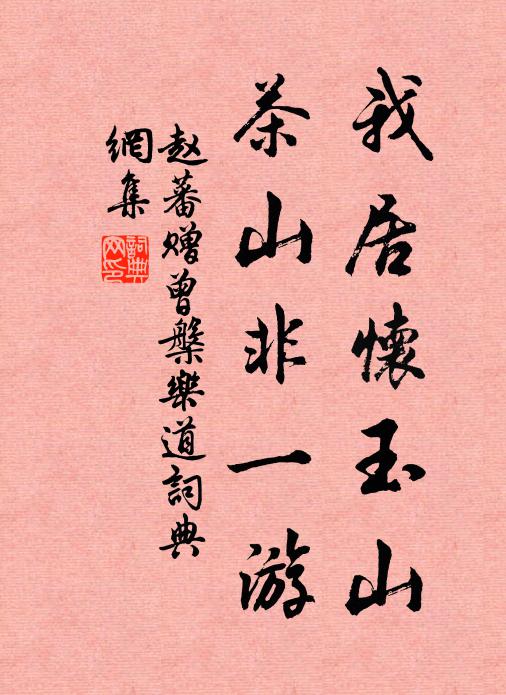 我居懷玉山
茶山非一游
赵蕃贈曾槃樂道詞典
網集
詞典
网印